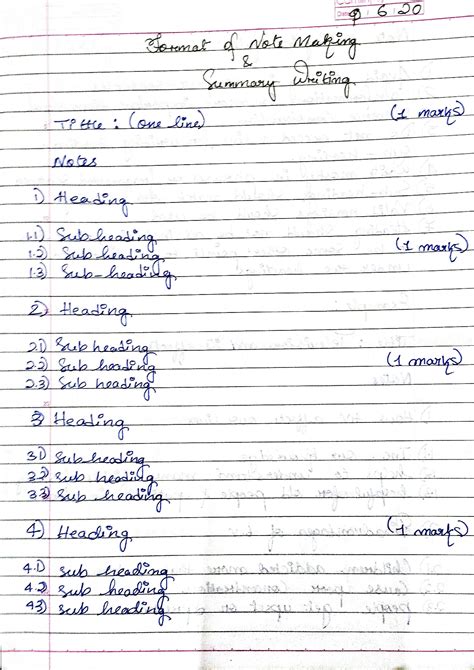 9 6 20
Format of Note Making
&
Summary Writing
Tittle : (one line) (1 marks)
Notes
1) Heading
1.1) Sub heading
1.2) Sub heading (1 marks)
1.3) Sub-heading
2) Heading
2.1) Sub heading
2.2) Sub heading (1 marks)
2.3) Sub heading
3) Heading
3.1) Sub heading
3.2) sub heading
3.3) Sub heading
4) Heading (1 marks)
4.1) sub heading
4.2) sub heading
4.3) sub heading